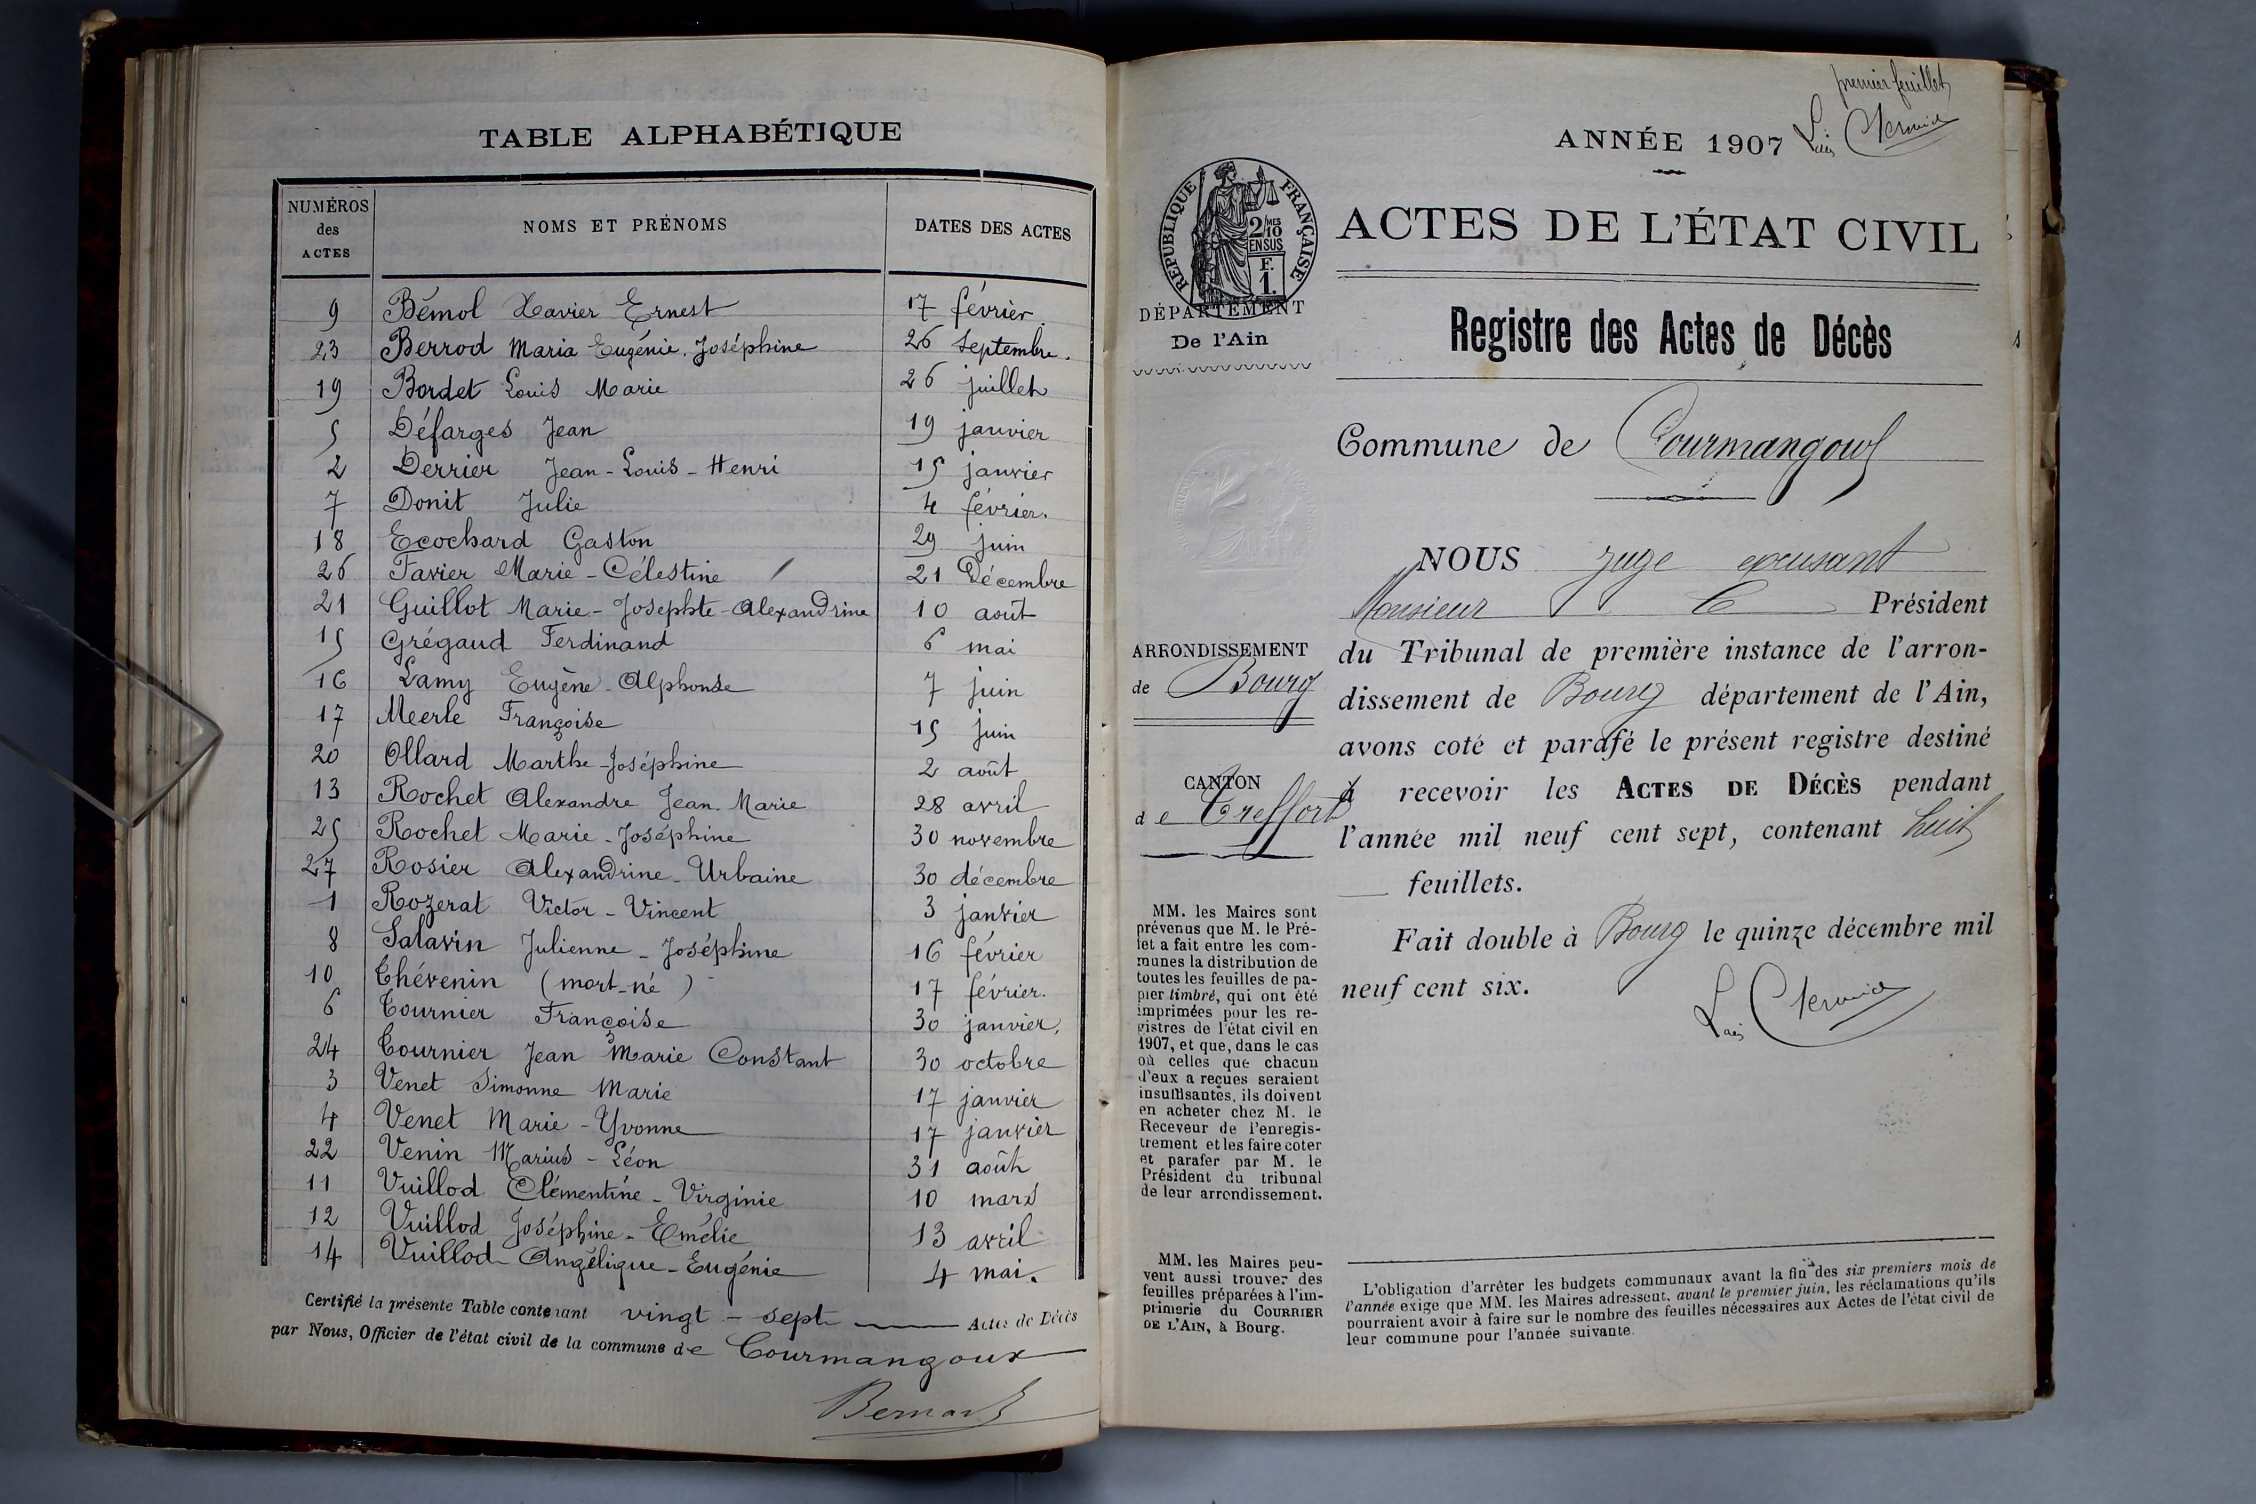 TABLE ALPHABÉTIQUE
NUMÉROS des ACTES NOMS ET PRÉNOMS DATES DES ACTES
9 Bémol Xavier Ernest 17 février
23 Berrod Maria Eugénie Joséphine 26 Septembre.
19 Bordet Louis Marie 26 juillet
5 Défarges Jean 19 janvier
2 Derrier Jean-Louis-Henri 15 janvier
7 Donit Julie 4 février.
18 Ecochard Gaston 29 juin
26 Favier Marie-Célestine 21 Décembre
21 Guillot Marie-Josephte-Alexandrine 10 août
15 Grégaud Ferdinand 6 mai
16 Lamy Eugène-Alphonse 7 juin
17 Meerle Françoise 15 juin
20 Ollard Marthe-Joséphine 2 août
13 Rochet Alexandre Jean-Marie 28 avril
25 Rochet Marie-Joséphine 30 novembre
27 Rosier Alexandrine-Urbaine 30 décembre
1 Rozerat Victor-Vincent 3 janvier
8 Salavin Julienne-Joséphine 16 février
10 Thévenin (mort-né) 17 février.
6 Tournier Françoise 30 janvier.
24 Tournier Jean Marie Constant 30 octobre
3 Venet Simonne Marie 17 janvier
4 Venet Marie-Yvonne 17 janvier
22 Venin Marius-Léon 31 août
11 Vuillod Clémentine-Virginie 10 mars
12 Vuillod Joséphine-Emélie 13 avril
14 Vuillod Angélique-Eugénie 4 mai.
Certifié la présente Table contenant vingt-sept Actes de Décès
par Nous, Officier de l'état civil de la commune de Courmangoux
Bernard
premier feuillet
ANNÉE 1907
ACTES DE L'ÉTAT CIVIL
RÉPUBLIQUE FRANÇAISE
2/10MES
EN SUS
F.
1.
DÉPARTEMENT
De l'Ain
Registre des Actes de Décès
Commune de Courmangoux
NOUS juge excusant
Monsieur Président
du Tribunal de première instance de l'arron-
dissement de Bourg département de l'Ain,
avons coté et parafé le présent registre destiné
à recevoir les ACTES DE DÉCÈS pendant
l'année mil neuf cent sept, contenant huit
feuillets.
Fait double à Bourg le quinze décembre mil
neuf cent six.
ARRONDISSEMENT
de Bourg
CANTON
de Treffort
MM. les Maires sont
prévenus que M. le Pré-
fet a fait entre les com-
munes la distribution de
toutes les feuilles de pa-
pier timbré, qui ont été
imprimées pour les re-
gistres de l'état civil en
1907, et que, dans le cas
où celles que chacun
d'eux a reçues seraient
insuffisantes, ils doivent
en acheter chez M. le
Receveur de l'enregis-
trement et les faire coter
et parafer par M. le
Président du tribunal
de leur arrondissement.
MM. les Maires peu-
vent aussi trouver des
feuilles préparées à l'im-
primerie du COURRIER
DE L'AIN, à Bourg.
L'obligation d'arrêter les budgets communaux avant la fin des six premiers mois de
l'année exige que MM. les Maires adressent, avant le premier juin, les réclamations qu'ils
pourraient avoir à faire sur le nombre des feuilles nécessaires aux Actes de l'état civil de
leur commune pour l'année suivante.